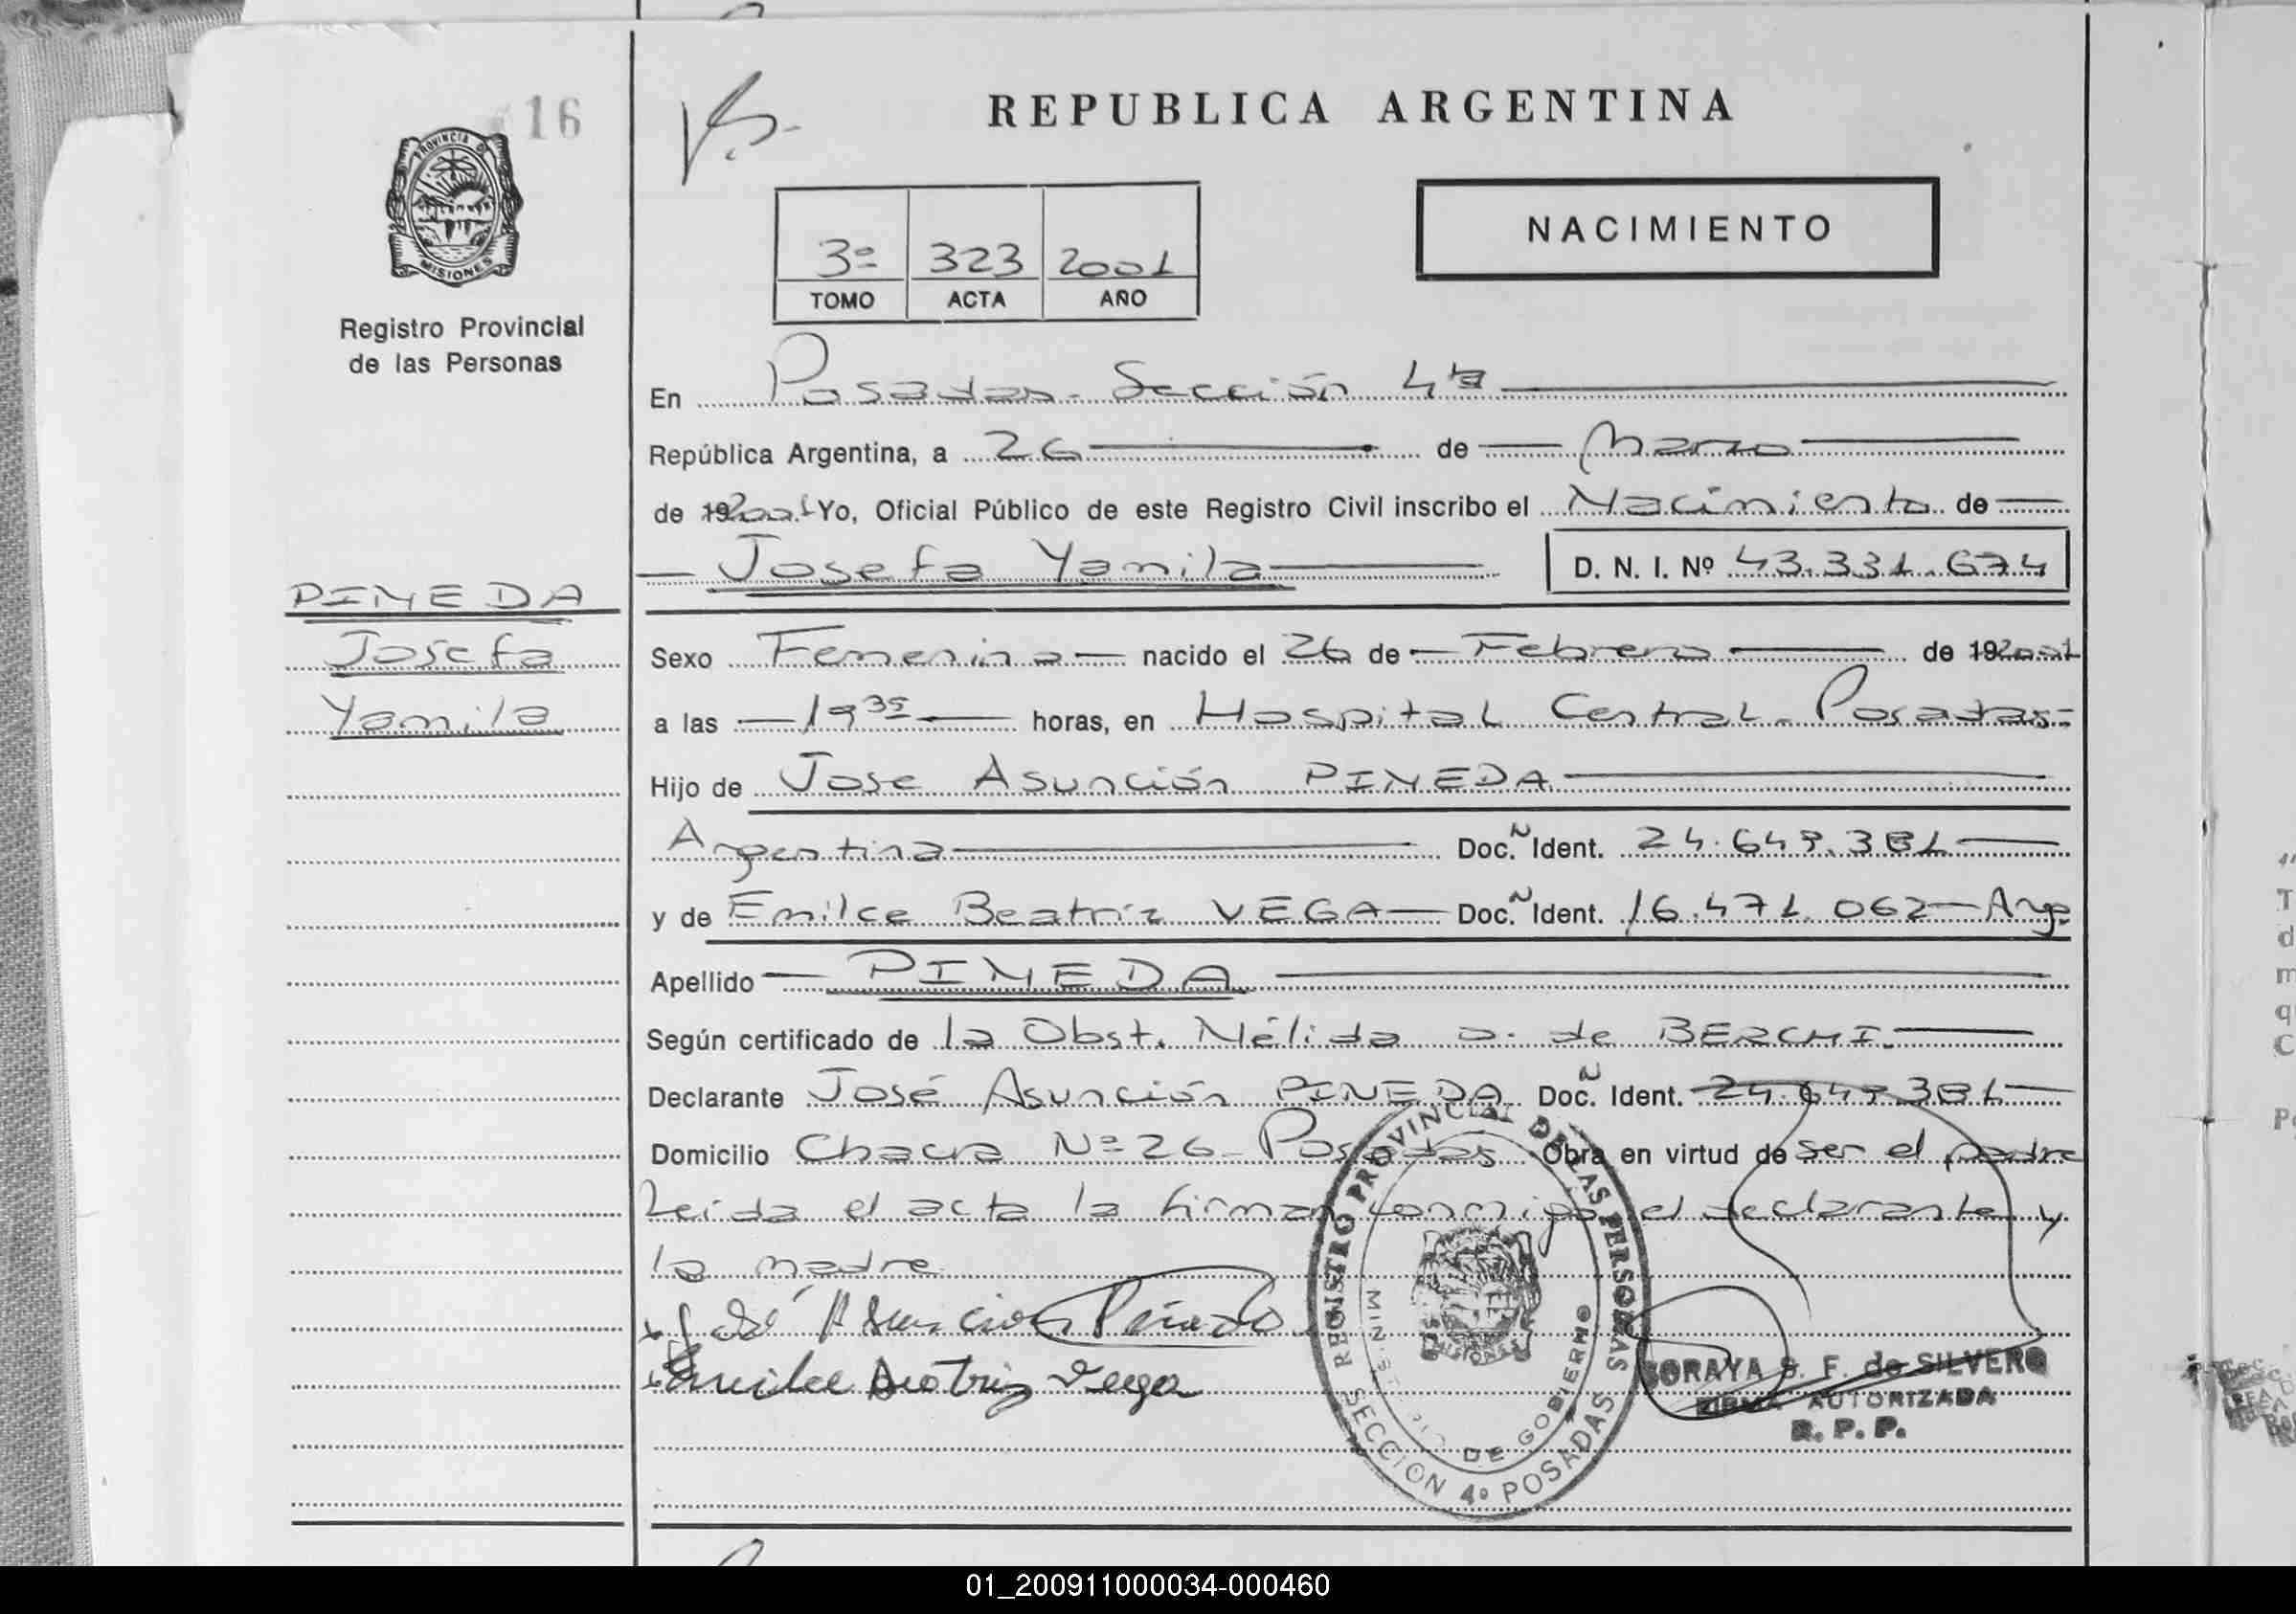 16
PROVINCIA DE
MISIONES
Registro Provincial
de las Personas
PINEDA
Josefa
Yamila
REPUBLICA ARGENTINA
NACIMIENTO
3º 323 2001
TOMO ACTA AÑO
En Posadas - Sección 4ta
República Argentina, a 26 de Marzo
de 19 2001 Yo, Oficial Público de este Registro Civil inscribo el Nacimiento de
Josefa Yamila D. N. I. Nº 43.331.674
Sexo Femenino nacido el 26 de Febrero de 19 2001
a las 19 35 horas, en Hospital Central - Posadas-
Hijo de Jose Asunción PINEDA
Argentina Doc. N Ident. 24.649.381
y de Emilce Beatriz VEGA Doc. N Ident. 16.471.062 - Arg.
Apellido PINEDA
Según certificado de la Obst. Nélida a. de BERCHI.
Declarante José Asunción PINEDA Doc. N Ident. 24.649.381
Domicilio Chacra Nº 26 - Posadas Obra en virtud de ser el padre
Leida el acta la firman conmigo el declarante y
la madre
x José Asuncion Pineda
x Emilce Beatriz Vega
REGISTRO PROVINCIAL DE LAS PERSONAS
MINISTERIO DE GOBIERNO
MISIONES
SECCION 4º POSADAS
SORAYA S. F. de SILVERO
FIRMA AUTORIZADA
R. P. P.
01_200911000034-000460